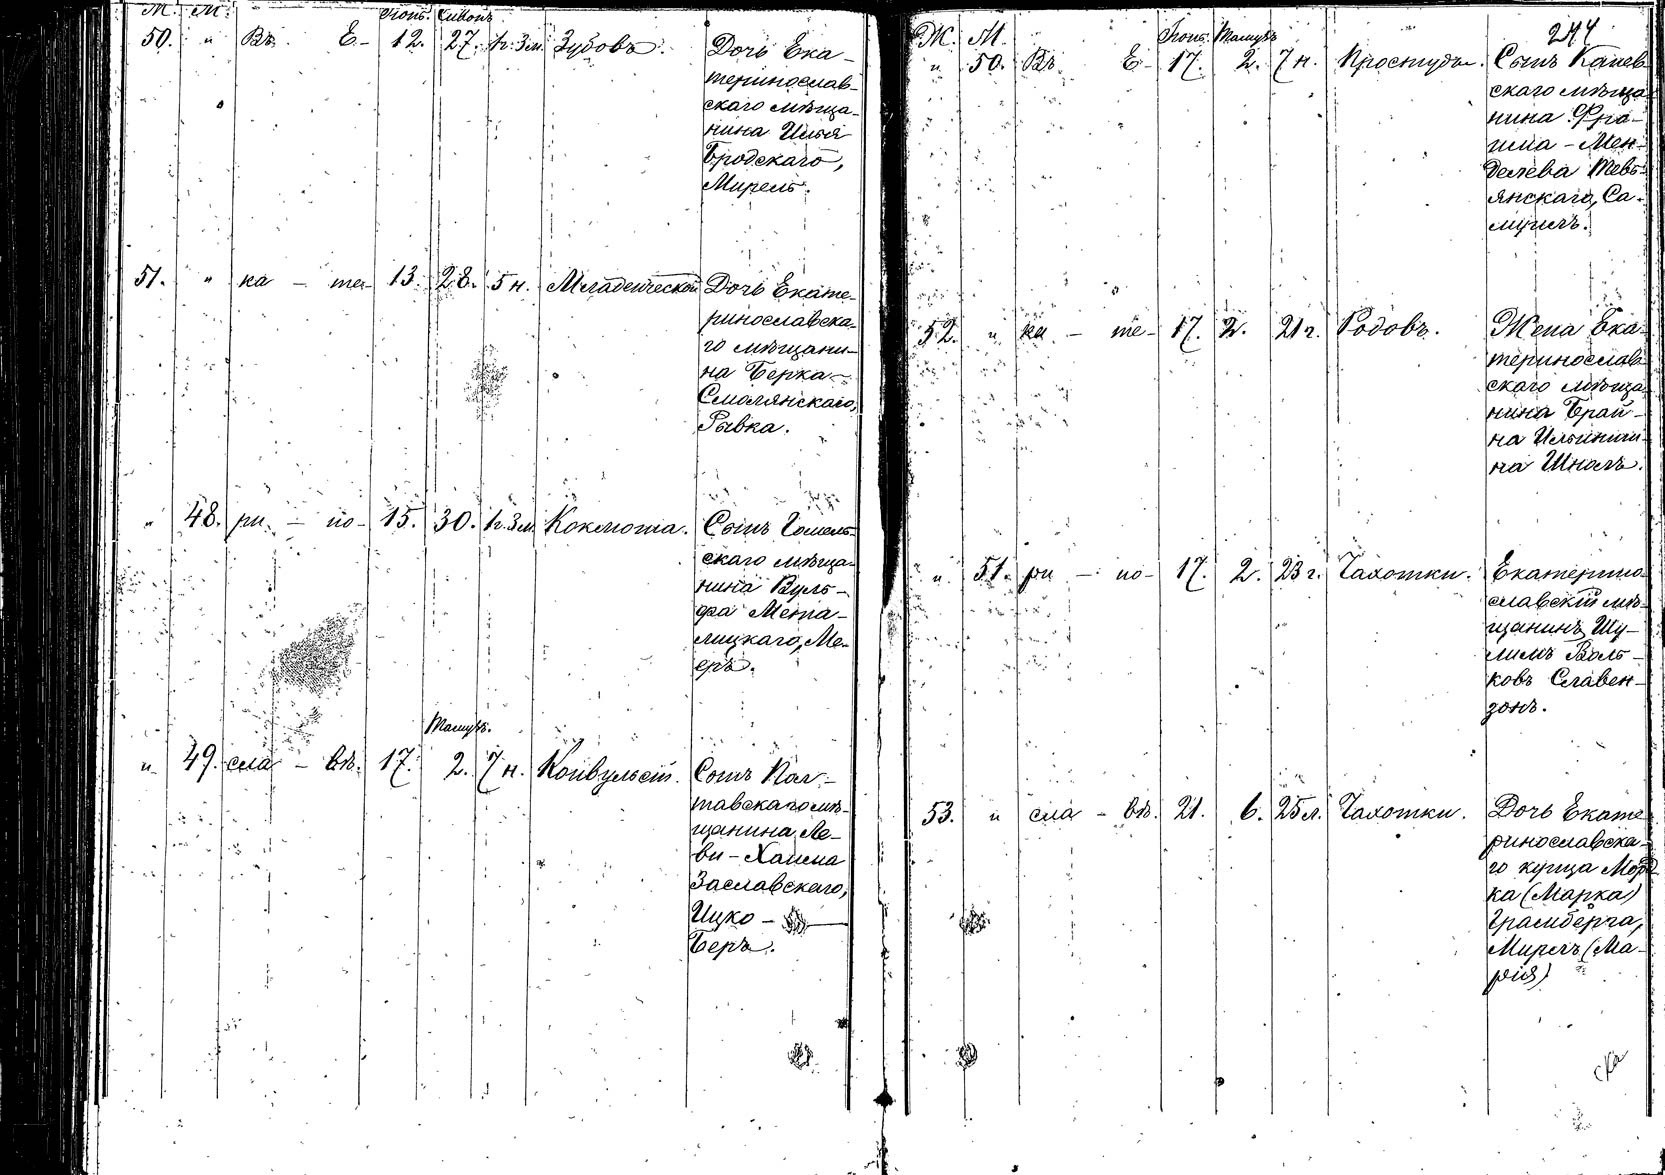 М. М. Іюнь. Сивонъ
50. " Въ Е- 12. 27. 1г. 3м. Зубовъ. Дочь Ека-
теринослав-
скаго мѣща-
нина Илья
Бродскаго,
Мирель.
51. " ка - те- 13. 28. 5н. Младенческой Дочь Екате-
ринославска-
го мѣщани-
на Берка
Смолянскаго,
Рывка.
" 48. ри - но- 15. 30. 1г. 3м. Коклюша. Сынъ Гомель-
скаго мѣща-
нина Вуль-
фа Мета-
лицкаго, Ме-
еръ.
Тамузъ.
" 49. сла - вѣ. 17. 2. 7н. Конвульсій. Сынъ Пол-
тавскаго мѣ-
щанина Ле-
ви-Хаима
Заславскаго,
Ицко-
Беръ.
244
Ж. М. Іюнь. Тамузъ
" 50. Въ Е- 17. 2. 7н. Простуды. Сынъ Канев-
скаго мѣща-
нина Фро-
има-Мен-
делева
янскаго, Са-
муилъ.
52. " ка - те- 17. 2. 21г. Родовъ. Жена Ека-
теринослав-
скаго мѣща-
нина Брай-
на Ильинич-
на
" 51. ри - но- 17. 2. 23г. Чахотки. Екатерино-
славскій мѣ-
щанинъ Шу-
лимъ Воль-
ковъ Славен-
зонъ.
53. " сла - вѣ. 21. 6. 25л. Чахотки. Дочь Екате-
ринославска-
го купца Морд-
ка (Марка)
Грамберга,
Мирль (Ма-
рія)